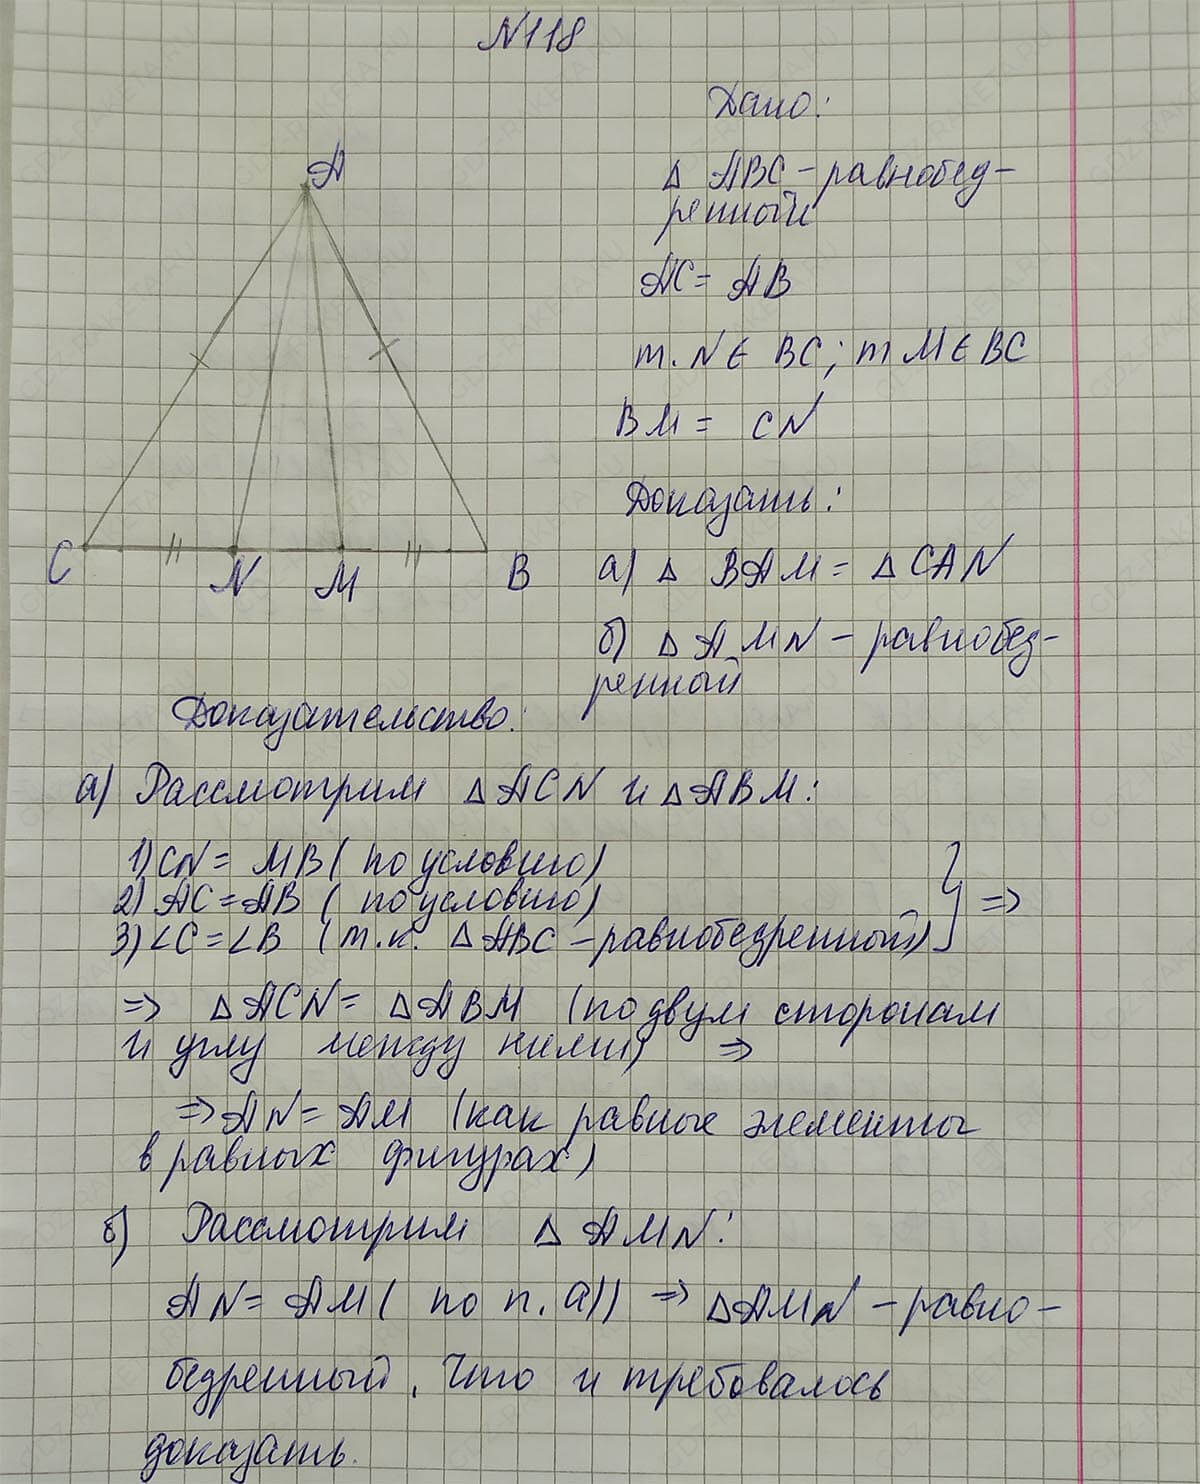 N118
Дано:
△ ABC - равнобед-
ренный
AC = AB
т. N ∈ BC; т M ∈ BC
BM = CN
Доказать:
а) △ BAM = △ CAN
б) △ AMN - равнобед-
ренный
A
C N M B
Доказательство:
а) Рассмотрим △ ACN и △ ABM:
1) CN = MB (по условию)
2) AC = AB (по условию)
3) ∠C = ∠B (т.к. △ ABC - равнобедренный) } =>
=> △ ACN = △ ABM (по двум сторонам
и углу между ними) =>
=> AN = AM (как равные элементы
в равных фигурах)
б) Рассмотрим △ AMN:
AN = AM (по п. а)) => △ AMN - равно-
бедренный. Что и требовалось
доказать.